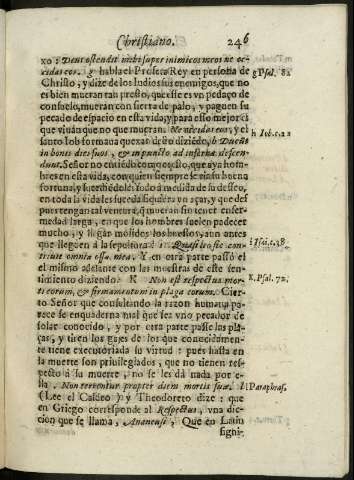 Christiano. 246
xo: Deus ostendit mihi super inimicos meos ne oc-
cidas eos. g habla el Profeta Rey en persona de g Psal. 82
Christo, y dize de los Iudios sus enemigos, que no
es bien mueran tan presto, que esse es vn pedaço de
consuelo, mueran con sierra de palo, y paguen su
pecado de espacio en esta vida, y para esso mejor es
que viuan que no que mueran. Ne occidas eos, y el
santo Iob formaua quexas dello diziẽdo, h Ducũt h Iob. c. 21
in bonis dies suos, & in puncto ad inferna descen-
dunt. Señor no es ruido compuesto, que aya hom-
bres en esta vida, con quien siempre se ria su buena
fortuna, y sucediẽdoles todo a medida de su desseo,
en toda la vida les suceda siquiera vn açar, y que des-
pues tengan tal ventura, q̃ mueran sin tener enfer-
medad larga, en que los hombres suelen padecer
mucho, y llegan molidos los huessos, aun antes
que lleguen a la sepultura i: Quasi leo sic con- i Isai. c. 38.
triuit omnia ossa mea. Y en otra parte passò el
el mismo adelante con las muestras de este sen-
timiento diziendo: K Non est respectus mor- K. Psal. 72.
ti eorum, & firmamentum in plaga eorum. Cier-
to Señor que consultando la razon humana pa-
rece se enquaderna mal que sea vno pecador de
solar conocido, y por otra parte passe las pla-
ças, y tiren los gajes de los que conocidamen-
te tiene executoriada su virtud: pues hasta en
la muerte son priuilegiados, que no tienen res-
pecto a su muerte, no se les dà nada por e-
lla. Non terrentur propter diem mortis suæ. l l Paraphras.
(Lee el Caldeo) y Theodoreto dize: que
en Griego corresponde al Respectus, vna dic-
cion que se llama, Ananeusi, Que en Latin
signi-